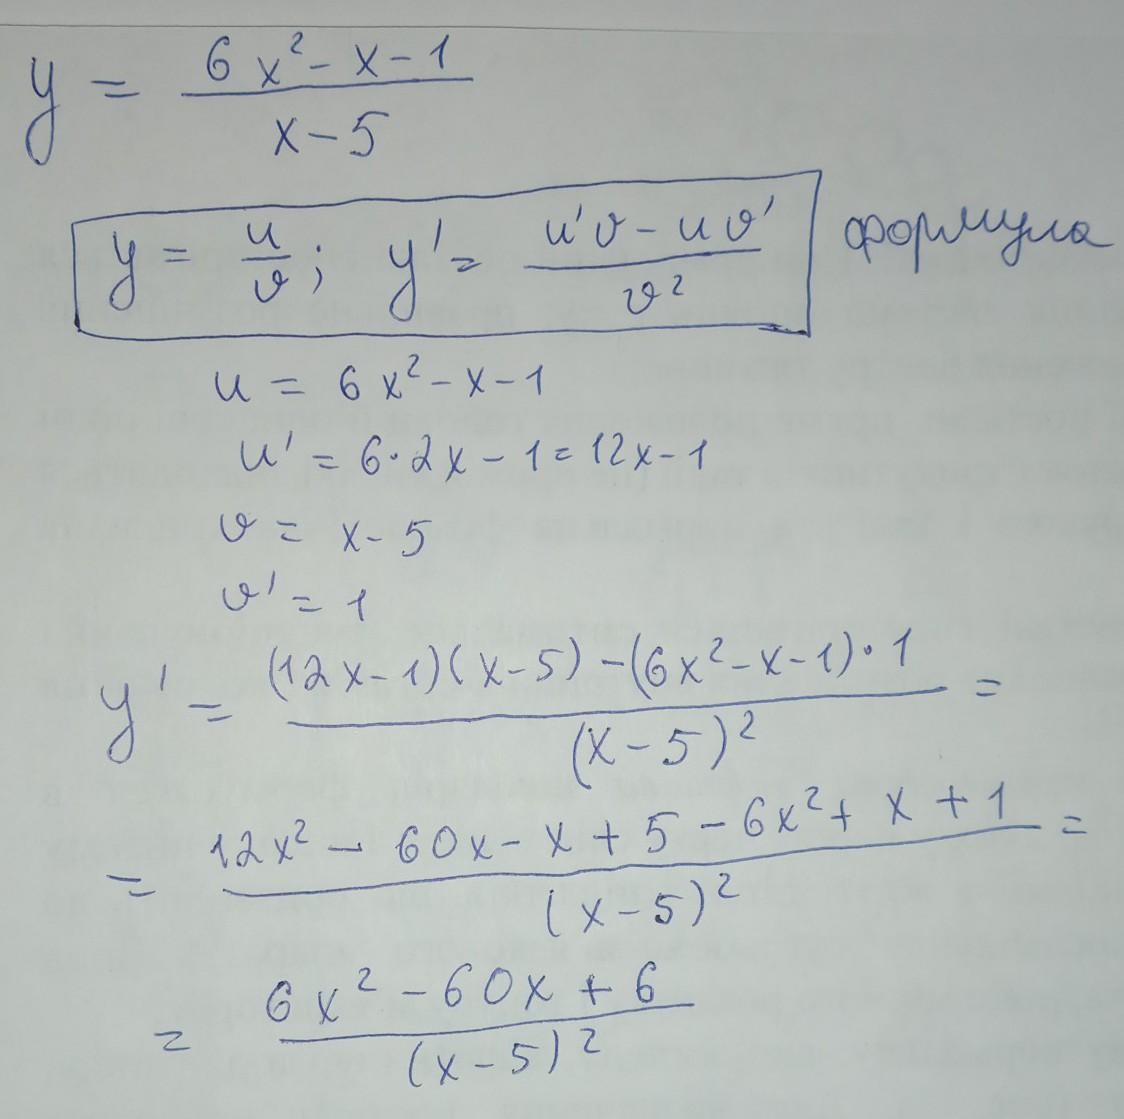 y = (6x² - x - 1)/(x - 5)
y = u/v; y' = (u'v - uv')/v² формула
u = 6x² - x - 1
u' = 6·2x - 1 = 12x - 1
v = x - 5
v' = 1
y' = ((12x - 1)(x - 5) - (6x² - x - 1)·1)/(x - 5)² =
= (12x² - 60x - x + 5 - 6x² + x + 1)/(x - 5)² =
= (6x² - 60x + 6)/(x - 5)²